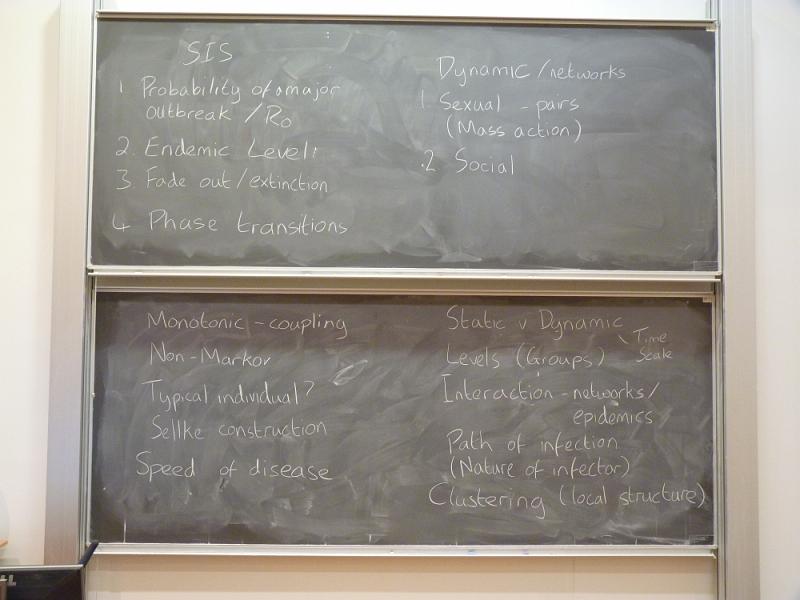 SIS
1 Probability of a major
outbreak / R0
2. Endemic Level
3. Fade out/extinction
4 Phase transitions
Dynamic/networks
1 Sexual - pairs
(Mass action)
.2 Social
Monotonic - coupling
Non-Markov
Typical individual?
Sellke construction
Speed of disease
Static v Dynamic
Time
Scale
Levels (Groups)
Interaction - networks/
epidemics
Path of infection
(Nature of infector)
Clustering (local structure)